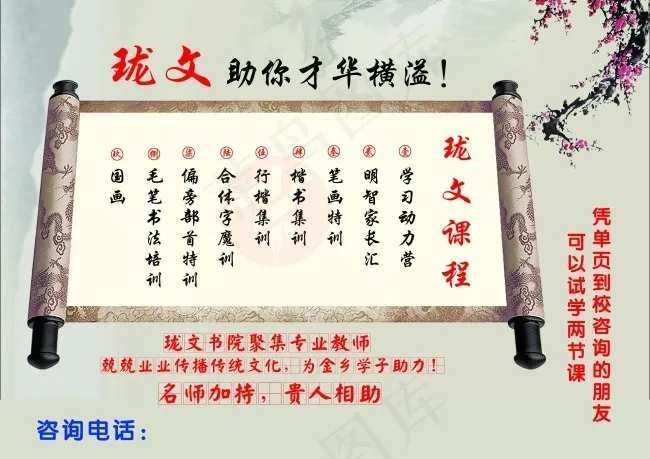 珑文 助你才华横溢！
珑文课程
壹 学习动力营
贰 明智家长汇
叁 笔画特训
肆 楷书集训
伍 行楷集训
陆 合体字魔训
柒 偏旁部首特训
捌 毛笔书法培训
玖 国画
凭单页到校咨询的朋友
可以试学两节课
珑文书院聚集专业教师
兢兢业业传播传统文化，为金乡学子助力！
名师加持，贵人相助
咨询电话：